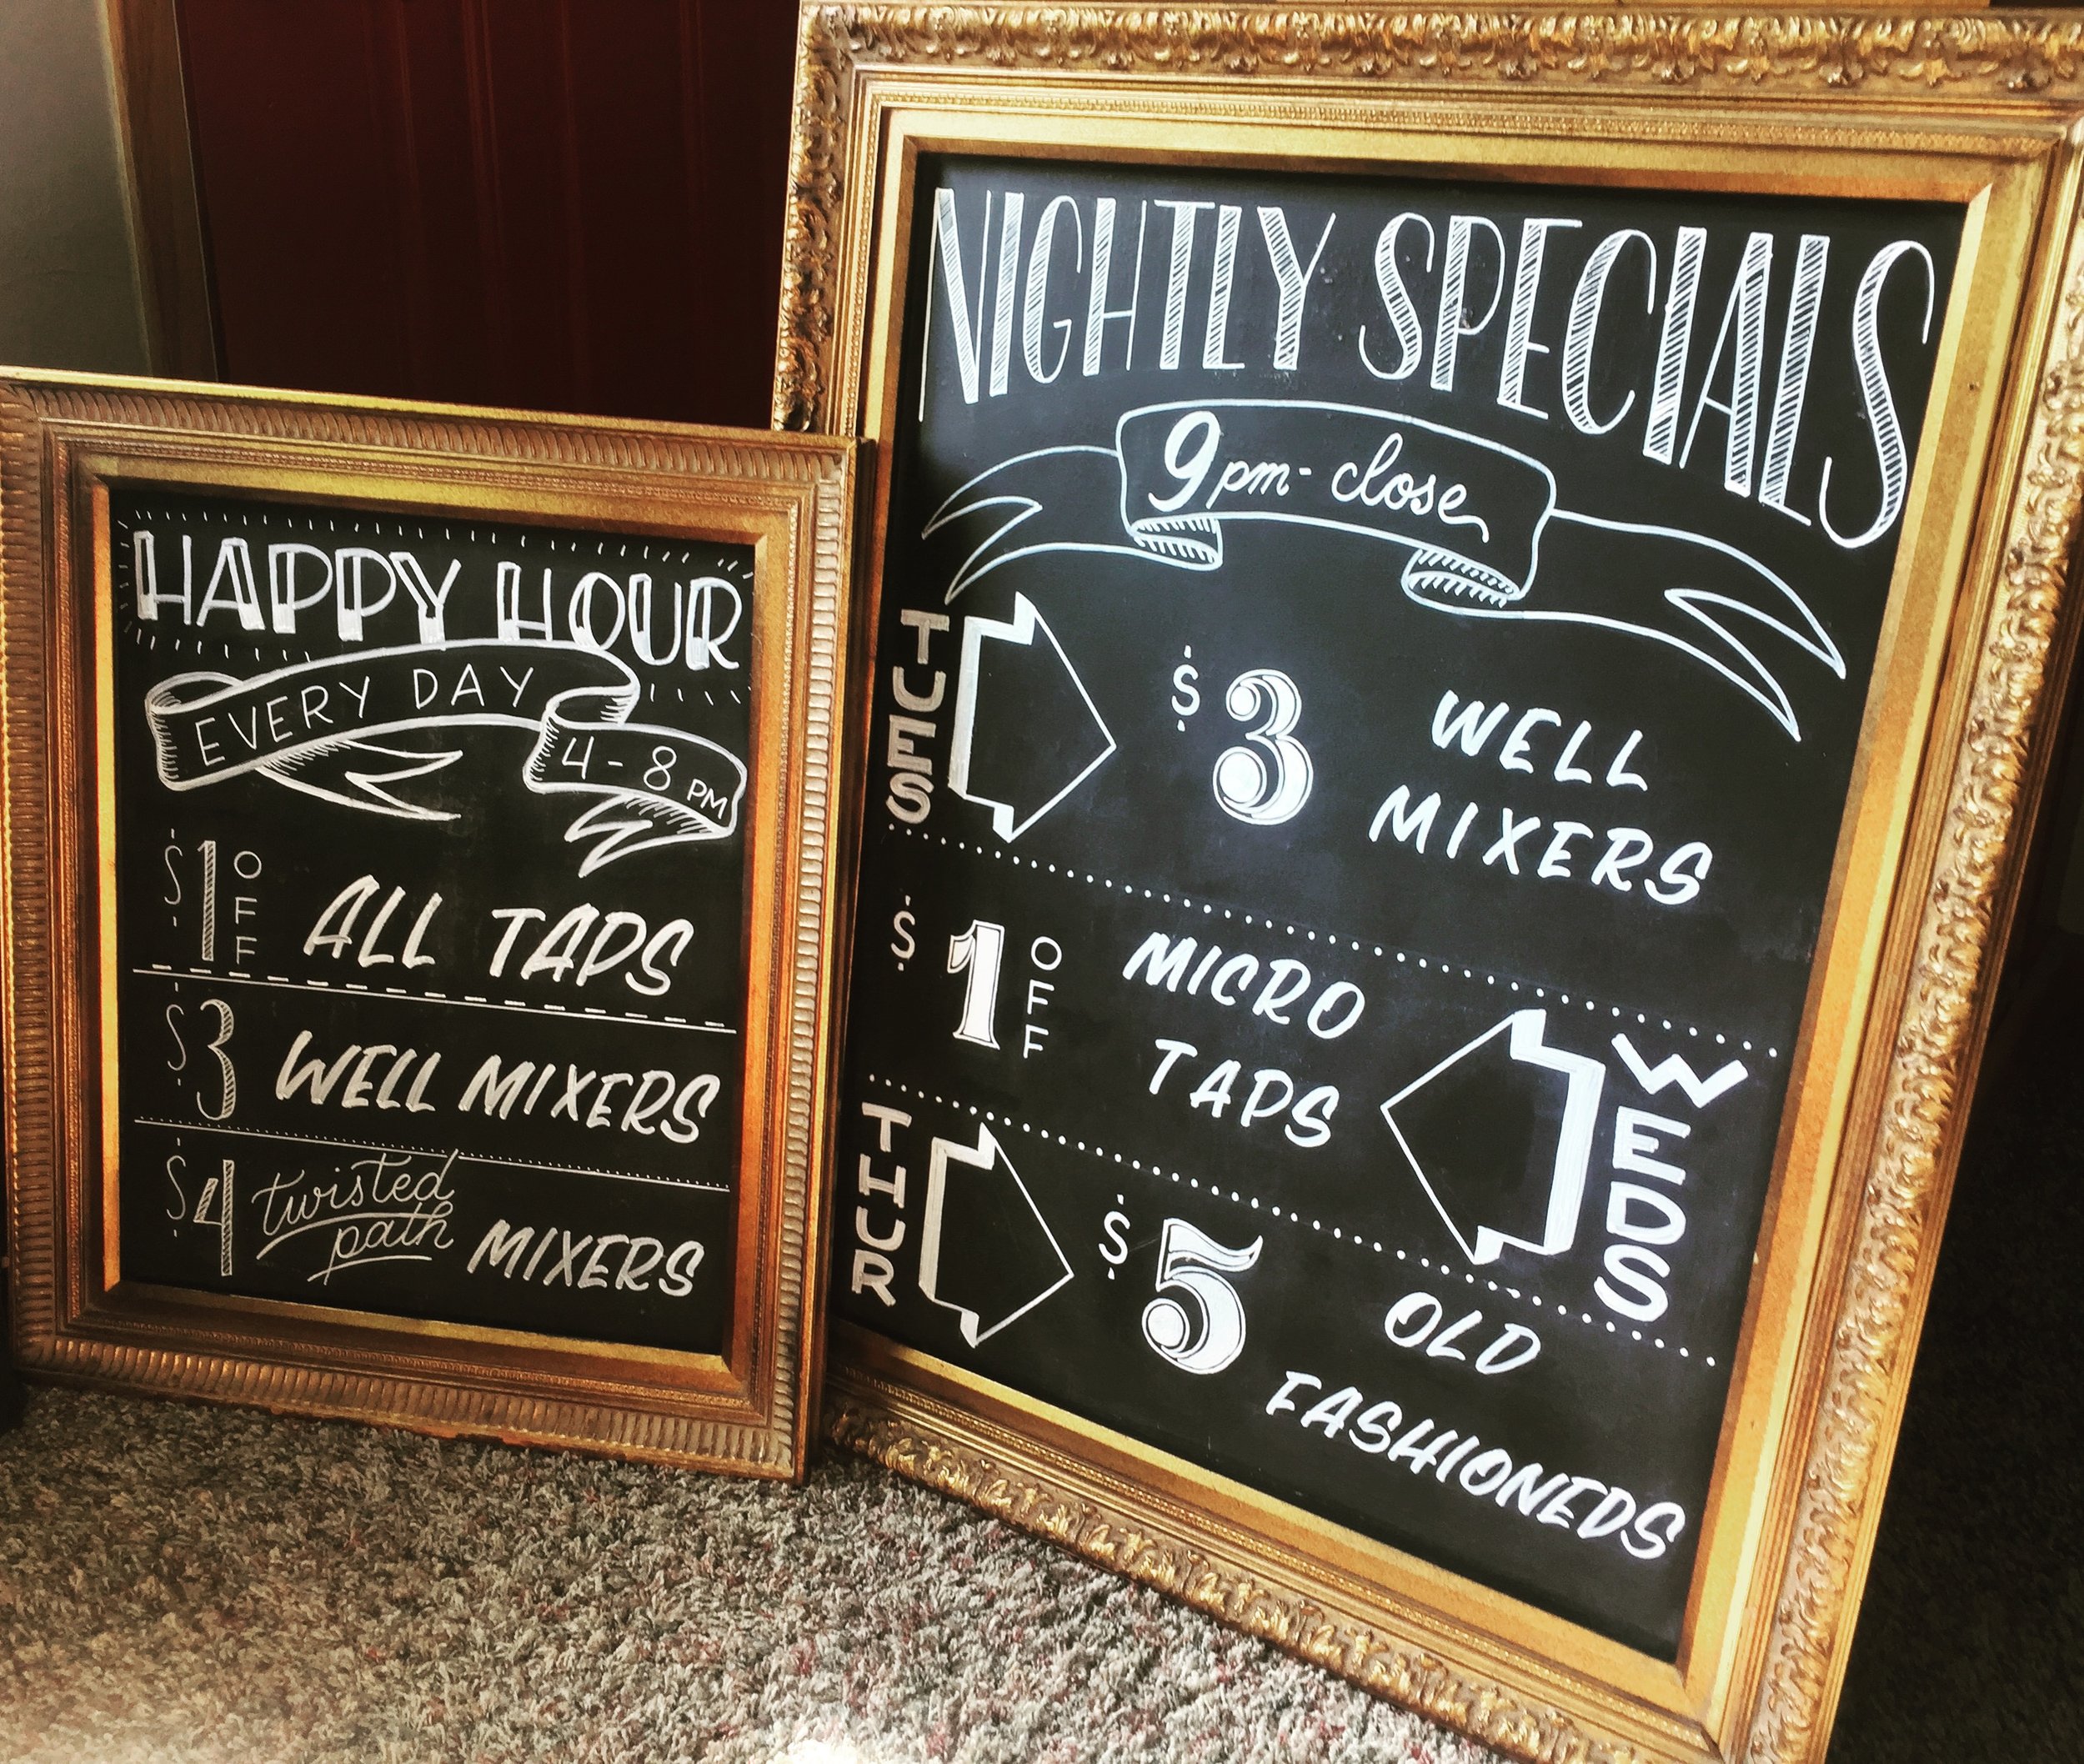 HAPPY HOUR
EVERY DAY
4-8 PM
$1 OFF ALL TAPS
$3 WELL MIXERS
$4 twisted path MIXERS
NIGHTLY SPECIALS
9pm-close
TUES
$3 WELL
MIXERS
$1 OFF MICRO
TAPS
WEDS
THUR
$5 OLD
FASHIONEDS